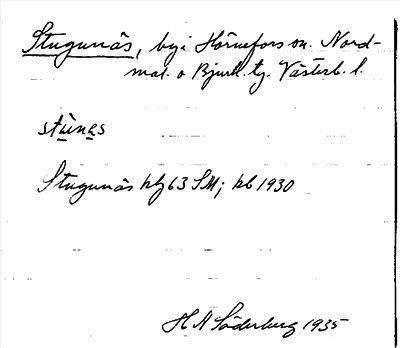 Stugunäs, by i Hörnefors sn. Nord-
mal. o Bjurh. tg. Västerb. l.
stùnes
Stugunäs kbg 63 SM; kb 1930
H N Söderberg 1935